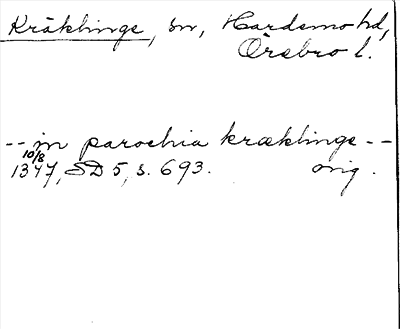 Kräklinge, sn, Hardemo hd,
Örebro l.
-- in parochia kræklinge --
10/8
1347, SD 5, s. 693. orig.